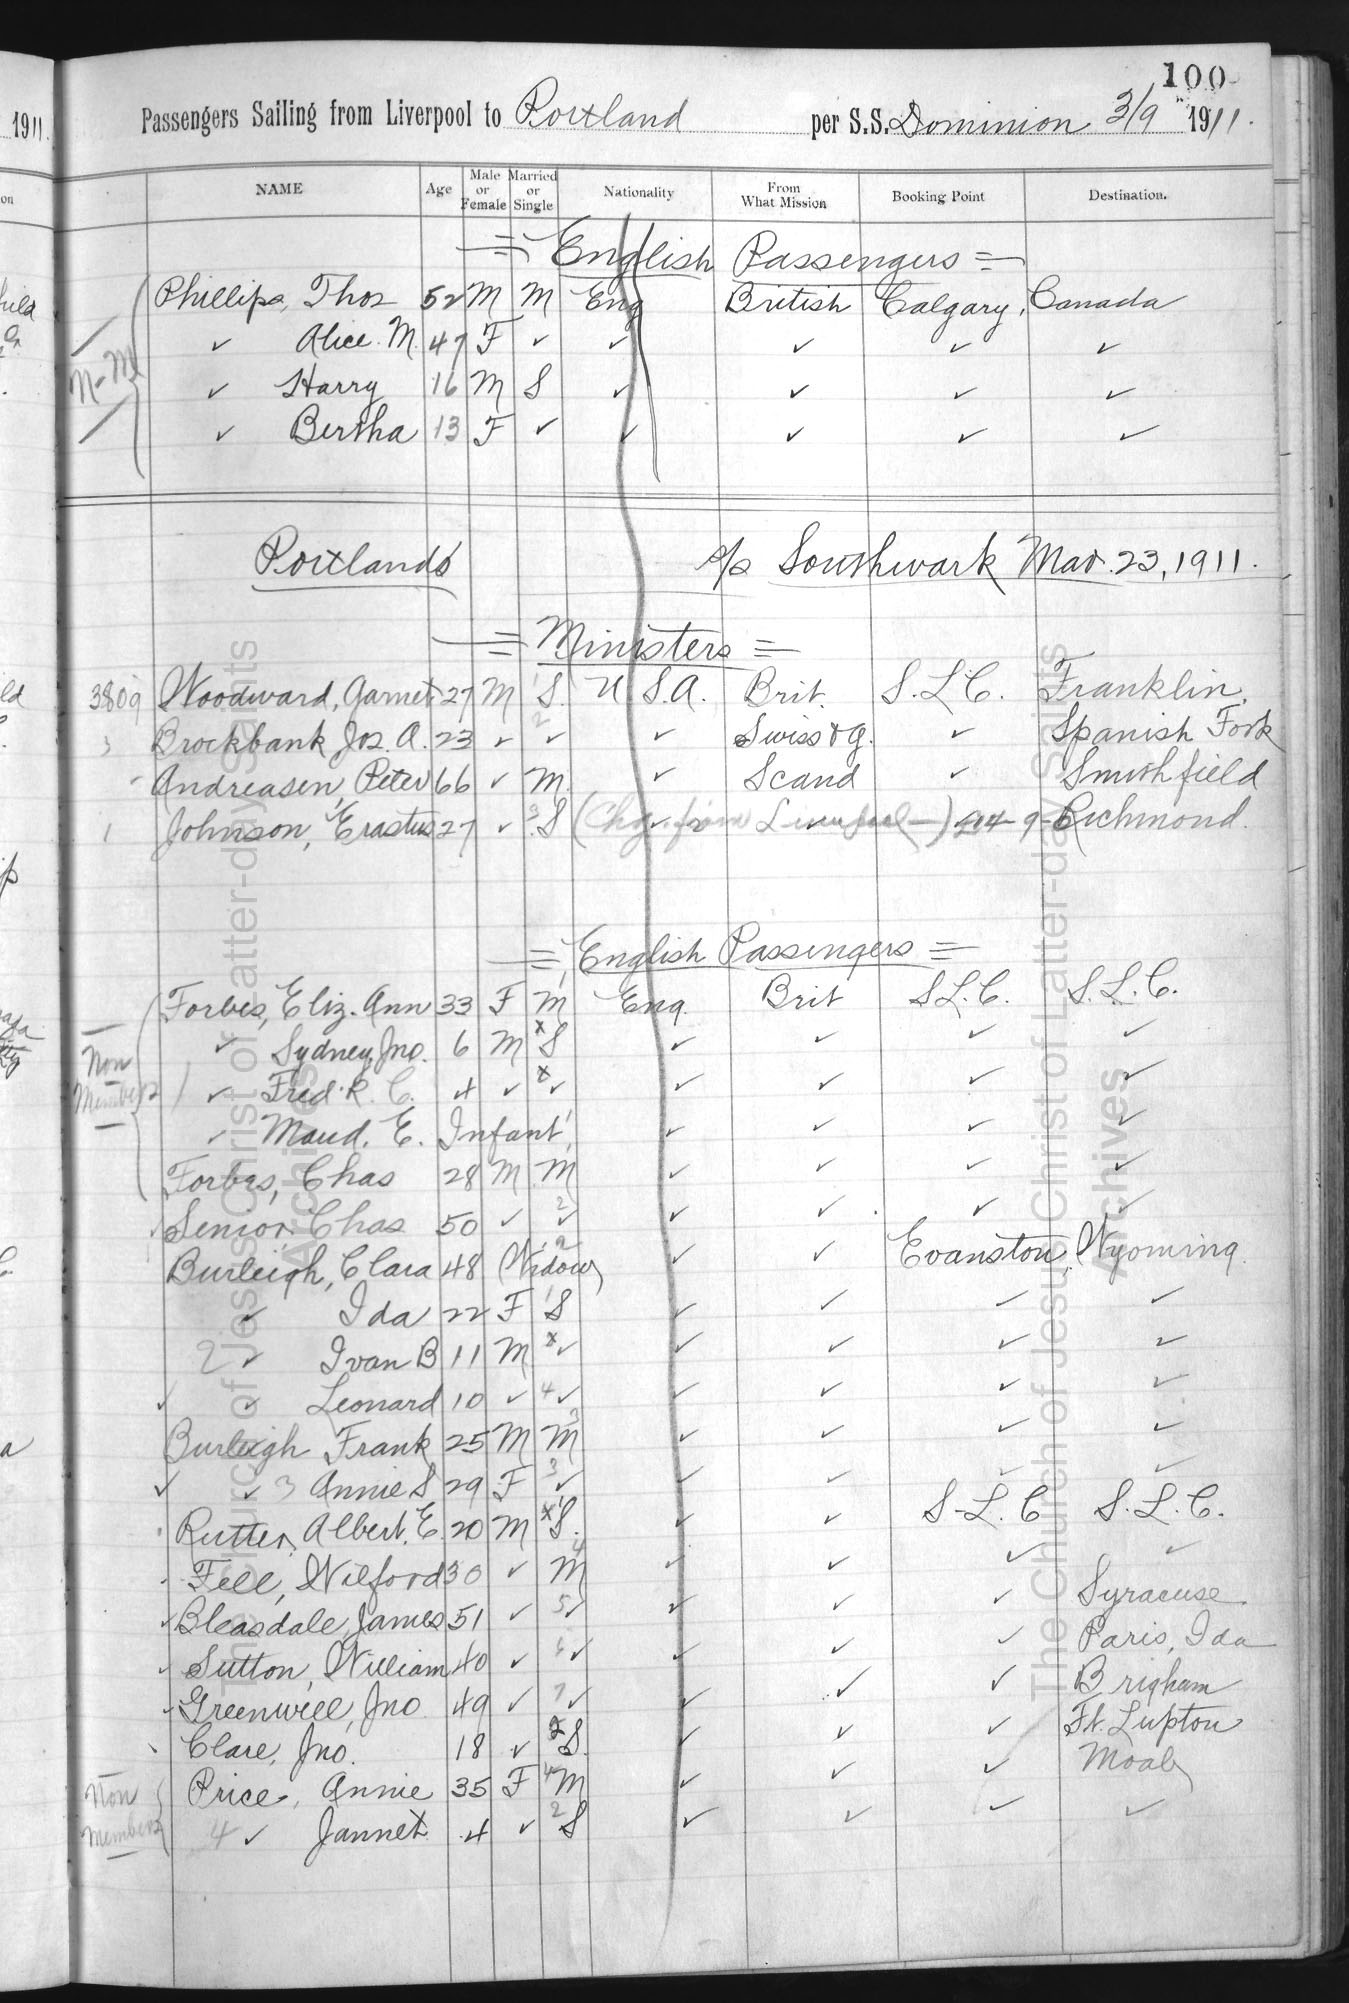 100
Passengers Sailing from Liverpool to Portland per S.S. Dominion 3/9 1911.
1911.
NAME Age Male or Female Married or Single Nationality From What Mission Booking Point Destination.
= English Passengers =
Phillips, Thos 52 M M Eng British Calgary, Canada
✓ Alice. M. 47 F ✓ ✓ ✓ ✓ ✓
N-M
✓ Harry 16 M S ✓ ✓ ✓ ✓
✓ Bertha 13 F ✓ ✓ ✓ ✓ ✓
Portland s/s Southwark Mar. 23, 1911.
= Ministers =
3809 Woodward, Garnet 27 M 1 S. U.S.A. Brit. S.L.C. Franklin,
3 Brockbank Jos. A. 23 ✓ 2 ✓ ✓ Swiss & G. ✓ Spanish Fork
Andreasen, Peter 66 ✓ M. ✓ Scand ✓ Smithfield
1 Johnson, Erastus 27 ✓ 3 S (Chg. from Liverpool) Richmond.
= English Passengers =
Forbes, Eliz. Ann 33 F M Eng. Brit S.L.C. S.L.C.
✓ Sydney, Jno. 6 M x S ✓ ✓ ✓ ✓
Non Members
✓ Fred. R. C. 4 ✓ x ✓ ✓ ✓ ✓ ✓
✓ Maud. E. Infant ✓ ✓ ✓ ✓
Forbes, Chas 28 M M ✓ ✓ ✓ ✓
Senior, Chas 50 ✓ 2 ✓ ✓ ✓ ✓ ✓
Burleigh, Clara 48 Widow 2 ✓ ✓ Evanston, Wyoming
✓ Ida 22 F S ✓ ✓ ✓ ✓
2 ✓ Ivan B 11 M x ✓ ✓ ✓ ✓ ✓
✓ ✓ Leonard 10 ✓ 4 ✓ ✓ ✓ ✓ ✓
Burleigh Frank 25 M M 3 ✓ ✓ ✓ ✓
✓ ✓ 3 Annie S 29 F 3 ✓ ✓ ✓ ✓ ✓
Rutter, Albert. E. 20 M x S. ✓ ✓ S-L. C S. L. C.
Fell, Wilford 30 ✓ M 4 ✓ ✓ ✓ ✓
✓ Bleasdale, James 51 ✓ 5 ✓ ✓ ✓ ✓ Syracuse
Sutton, William 40 ✓ 6 ✓ ✓ ✓ ✓ Paris, Ida
Greenwell, Jno 49 ✓ 7 ✓ ✓ ✓ ✓ Brigham
Clare, Jno. 18 ✓ 2 S. ✓ ✓ ✓ Ft. Lupton
Non Members
Price, Annie 35 F 4 M ✓ ✓ ✓ Moab
4 ✓ Jannet 4 ✓ 2 S ✓ ✓ ✓ ✓
The Church of Jesus Christ of Latter-day Saints
Archives
The Church of Jesus Christ of Latter-day Saints
Archives